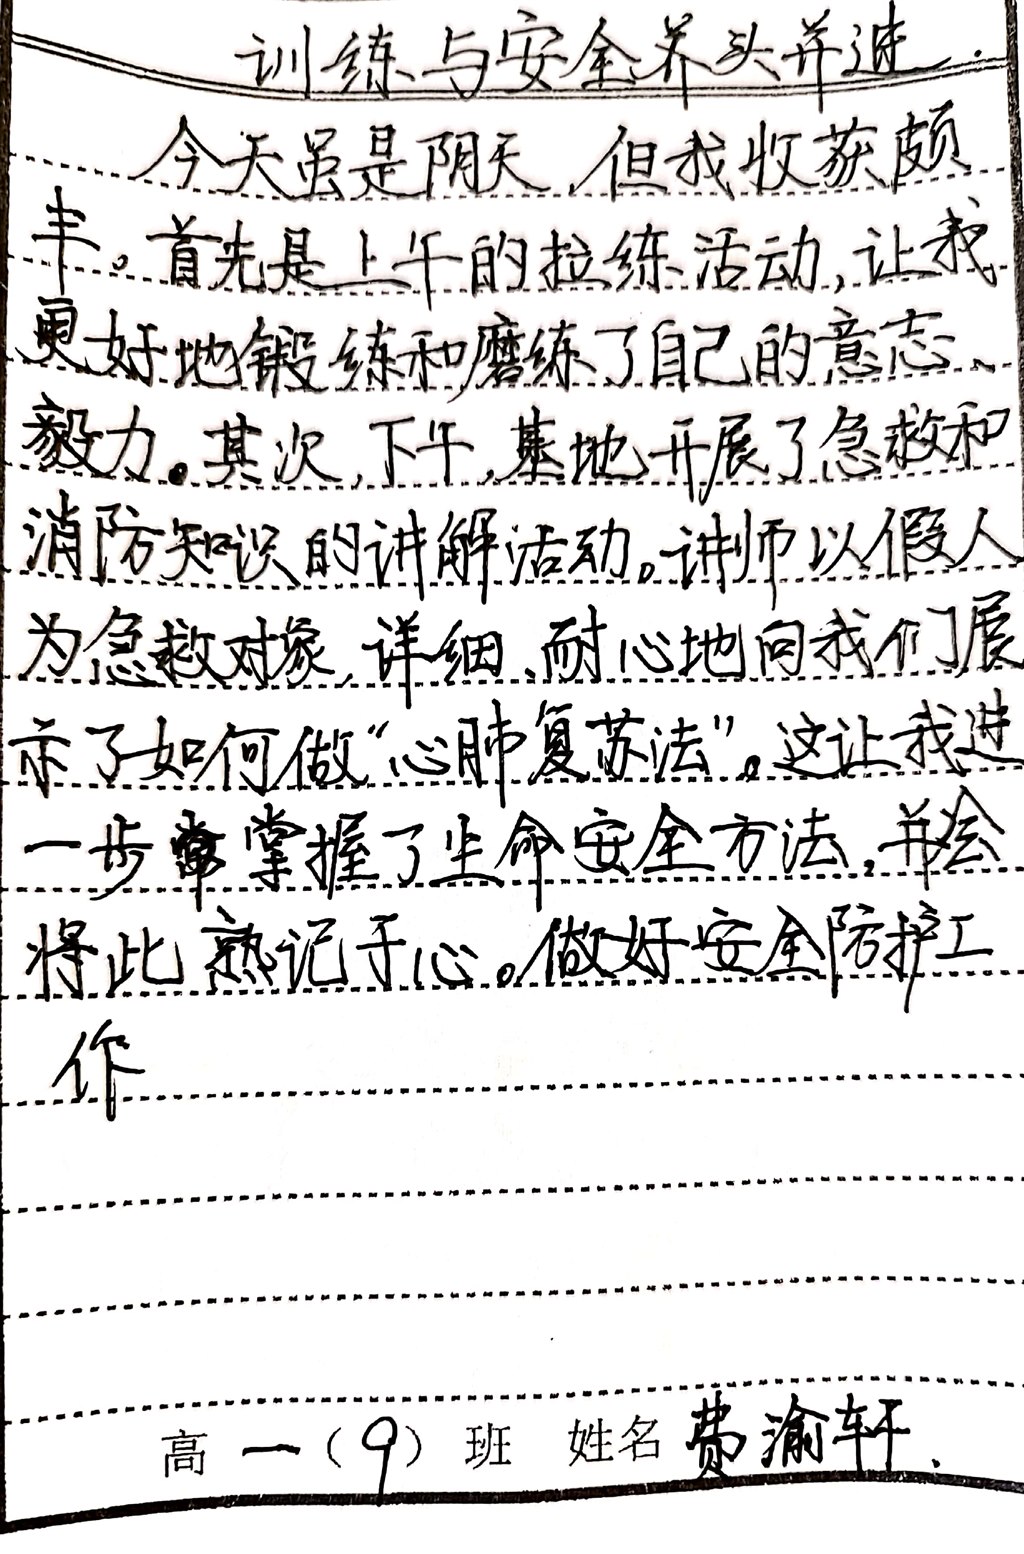 训练与安全养头并进.
今天虽是阴天,但我收获颇
丰。首先是上午的拉练活动,让我
更好地锻炼和磨练了自己的意志、
毅力。其次,下午,基地开展了急救和
消防知识的讲解活动。讲师以假人
为急救对象,详细、耐心地向我们展
示了如何做“心肺复苏法”。这让我进
一步掌握了生命安全方法,并会
将此熟记于心。做好安全防护工
作
高一(9)班 姓名 费渝轩.